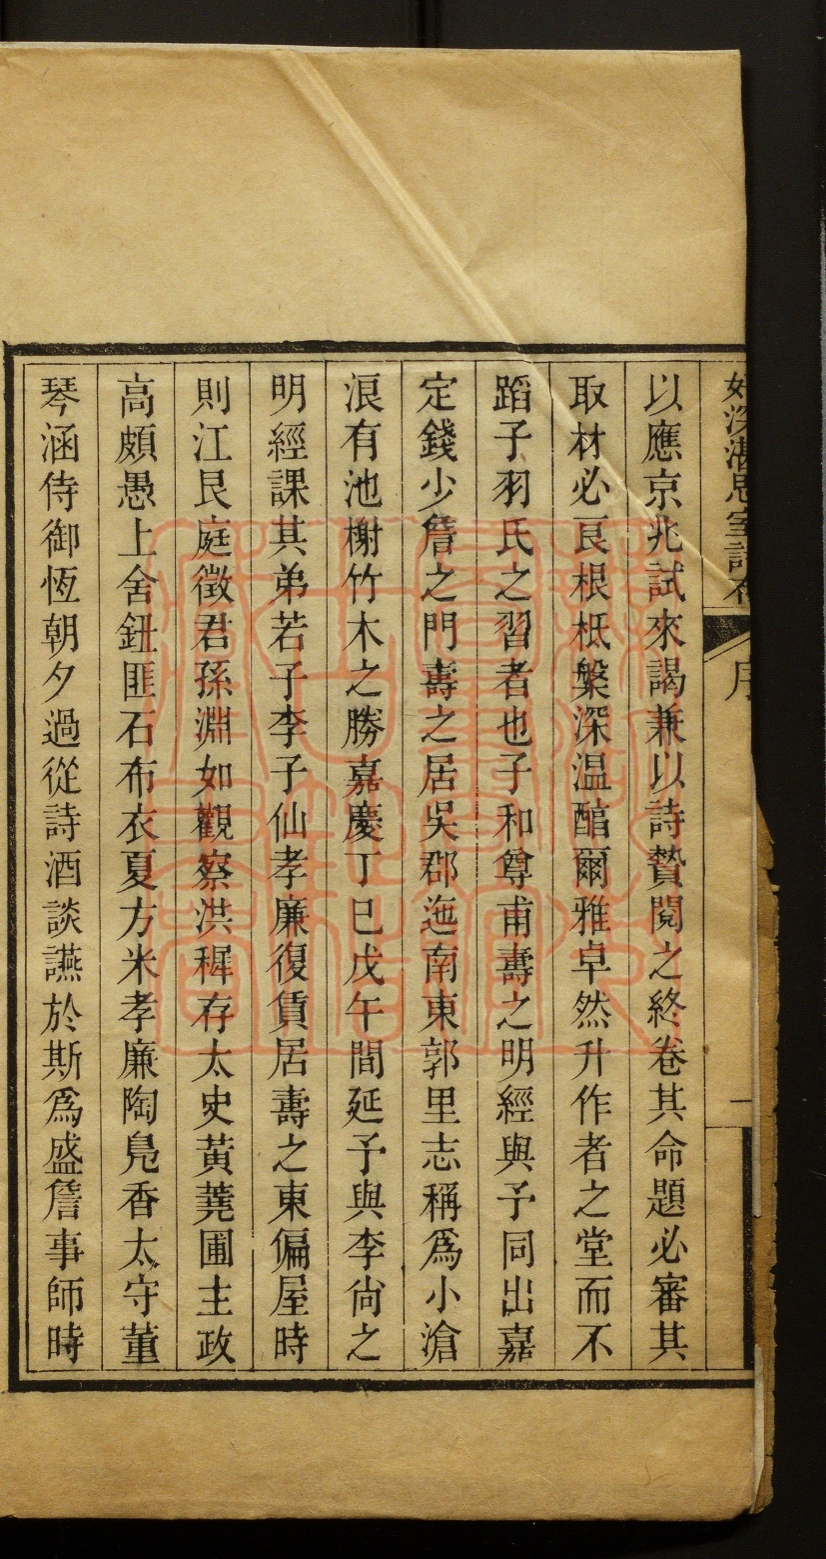 好深湛思室詩存
序
一
以應京兆試來謁兼以詩贄閱之終卷其命題必審其
取材必良根柢槃深温醕爾雅卓然升作者之堂而不
蹈子羽氏之習者也子和尊甫壽之明經與予同出嘉
定錢少詹之門壽之居吳郡迤南東郭里志稱爲小滄
浪有池榭竹木之勝嘉慶丁巳戊午間延予與李尙之
明經課其弟若子李子仙孝廉復賃居壽之東偏屋時
則江艮庭徵君孫淵如觀察洪穉存太史黃蕘圃主政
高頗愚上舍鈕匪石布衣夏方米孝廉陶鳧香太守董
琴涵侍御恆朝夕過從詩酒談讌於斯爲盛詹事師時